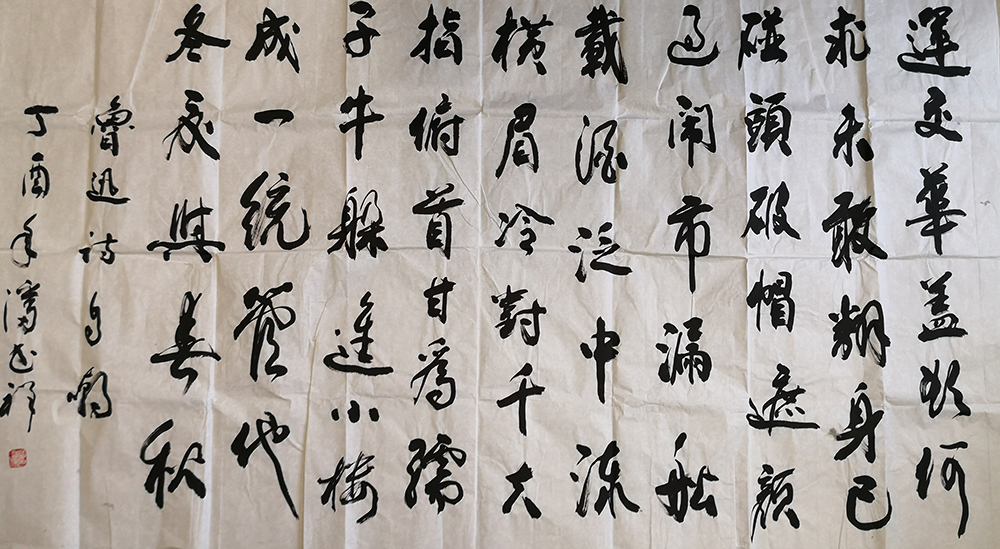 運交華盖欲何
求未敢翻身已
碰頭破帽遮颜
过闹市漏舩
載酒泛中流
横眉冷對千夫
指俯首甘為孺
子牛躲進小楼
成一統管他
冬夏與春秋
魯迅詩自嘲
丁酉年